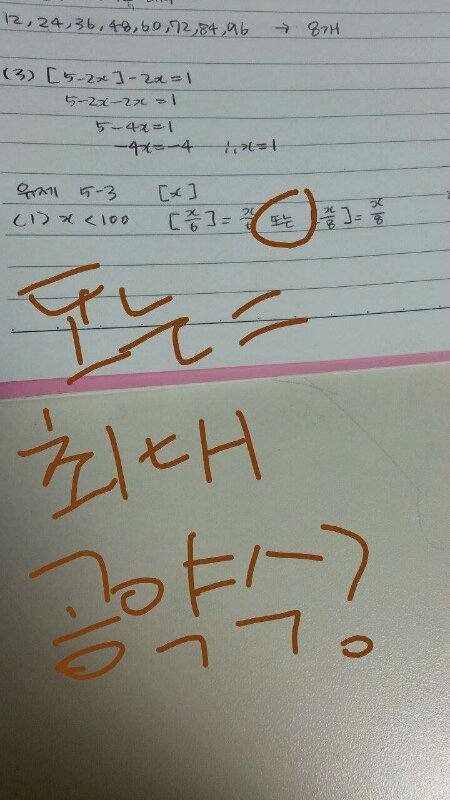 12, 24, 36, 48, 60, 72, 84, 96 → 8개
(3) [5-2x]-2x=1
5-2x-2x=1
5-4x=1
-4x=-4 ∴x=1
유제 5-3 [x]
(1) x<100 [x/6]=x/6 또는 [x/8]=x/8
또는=
최대
공약수?